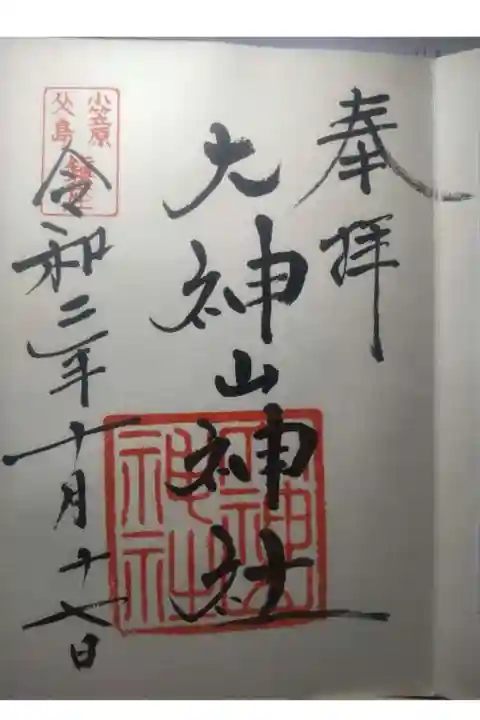 奉拝
大神山神社
令和二年十月十七日
小笠原
父島 鎮座